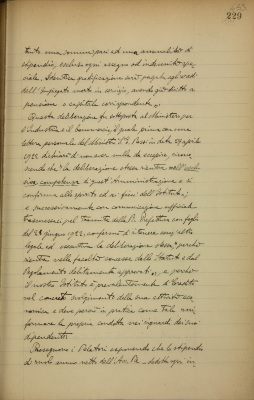 229
stipendio, esclusi ogni assegno ed indennità spe-
ciale. Identica gratificazione sarà pagata agli eredi
dell'impiegato morto in servizio, avendo già diritto a
pensione o capitale corrispondente.
Questa deliberazione fu sottoposta al Ministero per
l'Industria e il Commercio, il quale prima con una
lettera personale del Ministro On. Rossi in data 29 aprile
1922 dichiarò di non aver nulla da eccepire, rite-
nendo che "la deliberazione stessa rientra nell'esclu-
siva competenza di quest'Amministrazione e è
conforme allo spirito ed ai fini dell'Istituto";
e successivamente con comunicazione ufficiale
trasmessa pel tramite della R. Prefettura con foglio
del giugno 1922, confermò di ritenere
legale ed esecutiva la deliberazione stessa "perché
rientra nelle facoltà concesse dallo Statuto e dal
Regolamento debitamente approvati", e perché
il nostro Istituto è prevalentemente di Credito
nel concreto svolgimento della sua attività eco-
nomica, e deve perciò in pratica come tale uni-
formare la propria condotta nei riguardi dei suoi
dipendenti.
Proseguono i Relatori esponendo che lo stipendio